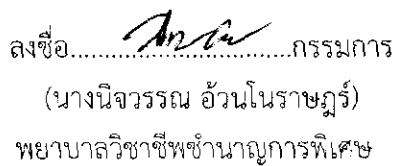 ลงชื่อ........................................กรรมการ
(นางนิจวรรณ อ้วนโนราษฎร์)
พยาบาลวิชาชีพชำนาญการพิเศษ